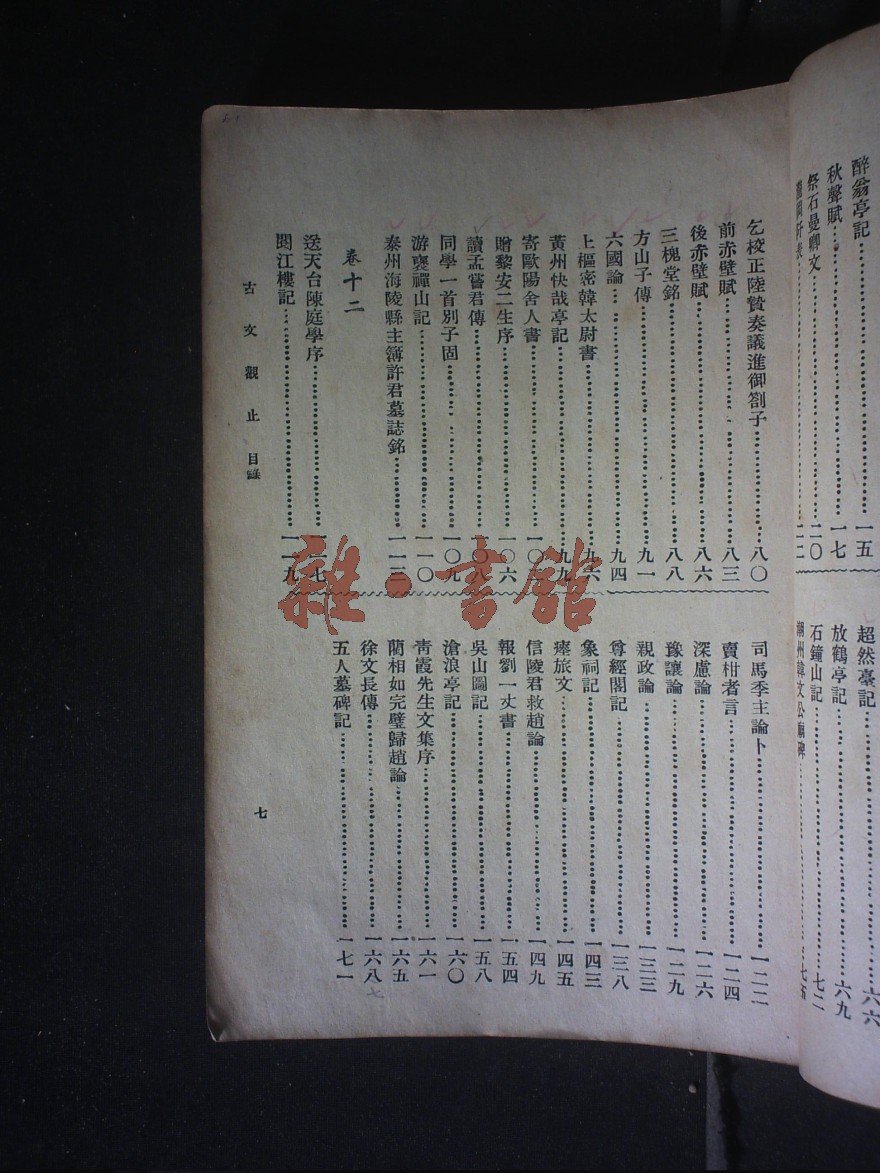 醉翁亭記 一五
秋聲賦 一七
祭石曼卿文 二〇
瀧岡阡表 二二
超然臺記 六六
放鶴亭記 六九
石鐘山記 七二
潮州韓文公廟碑 七五
乞校正陸贄奏議進御劄子 八〇
前赤壁賦 八三
後赤壁賦 八六
三槐堂銘 八八
方山子傳 九一
六國論 九四
上樞密韓太尉書 九六
黃州快哉亭記 九九
寄歐陽舍人書
贈黎安二生序 一〇六
讀孟嘗君傳 一〇八
同學一首別子固 一〇九
游襃禪山記 一一〇
泰州海陵縣主簿許君墓誌銘 一一三
卷十二
送天台陳庭學序 一一七
閱江樓記 一一九
司馬季主論卜 一二二
賣柑者言 一二四
深慮論 一二六
豫讓論 一二九
親政論 一三三
尊經閣記 一三八
象祠記 一四三
瘞旅文 一四五
信陵君救趙論 一四九
報劉一丈書 一五四
吳山圖記 一五八
滄浪亭記 一六〇
青霞先生文集序 一六一
藺相如完璧歸趙論 一六五
徐文長傳 一六八
五人墓碑記 一七一
古文觀止 目錄
七
雜·書館